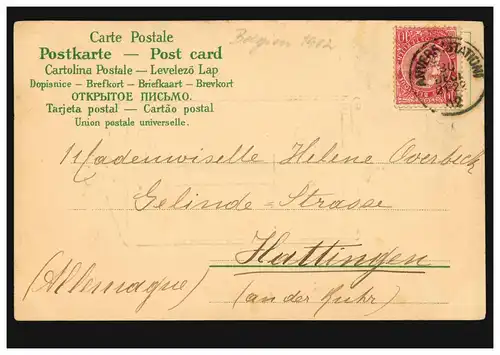 Carte Postale
Postkarte — Post card
Cartolina Postale — Levelező Lap
Dopisnice — Brefkort — Briefkaart — Brevkort
ОТКРЫТОЕ ПИСЬМО.
Tarjeta postal — Cartão postal
Union postale universelle.
Belgien 1902
Madenwiselle Helene Overbeck
Gelinde-Strasse
Hattingen
(Allemagne) (an der Ruhr)